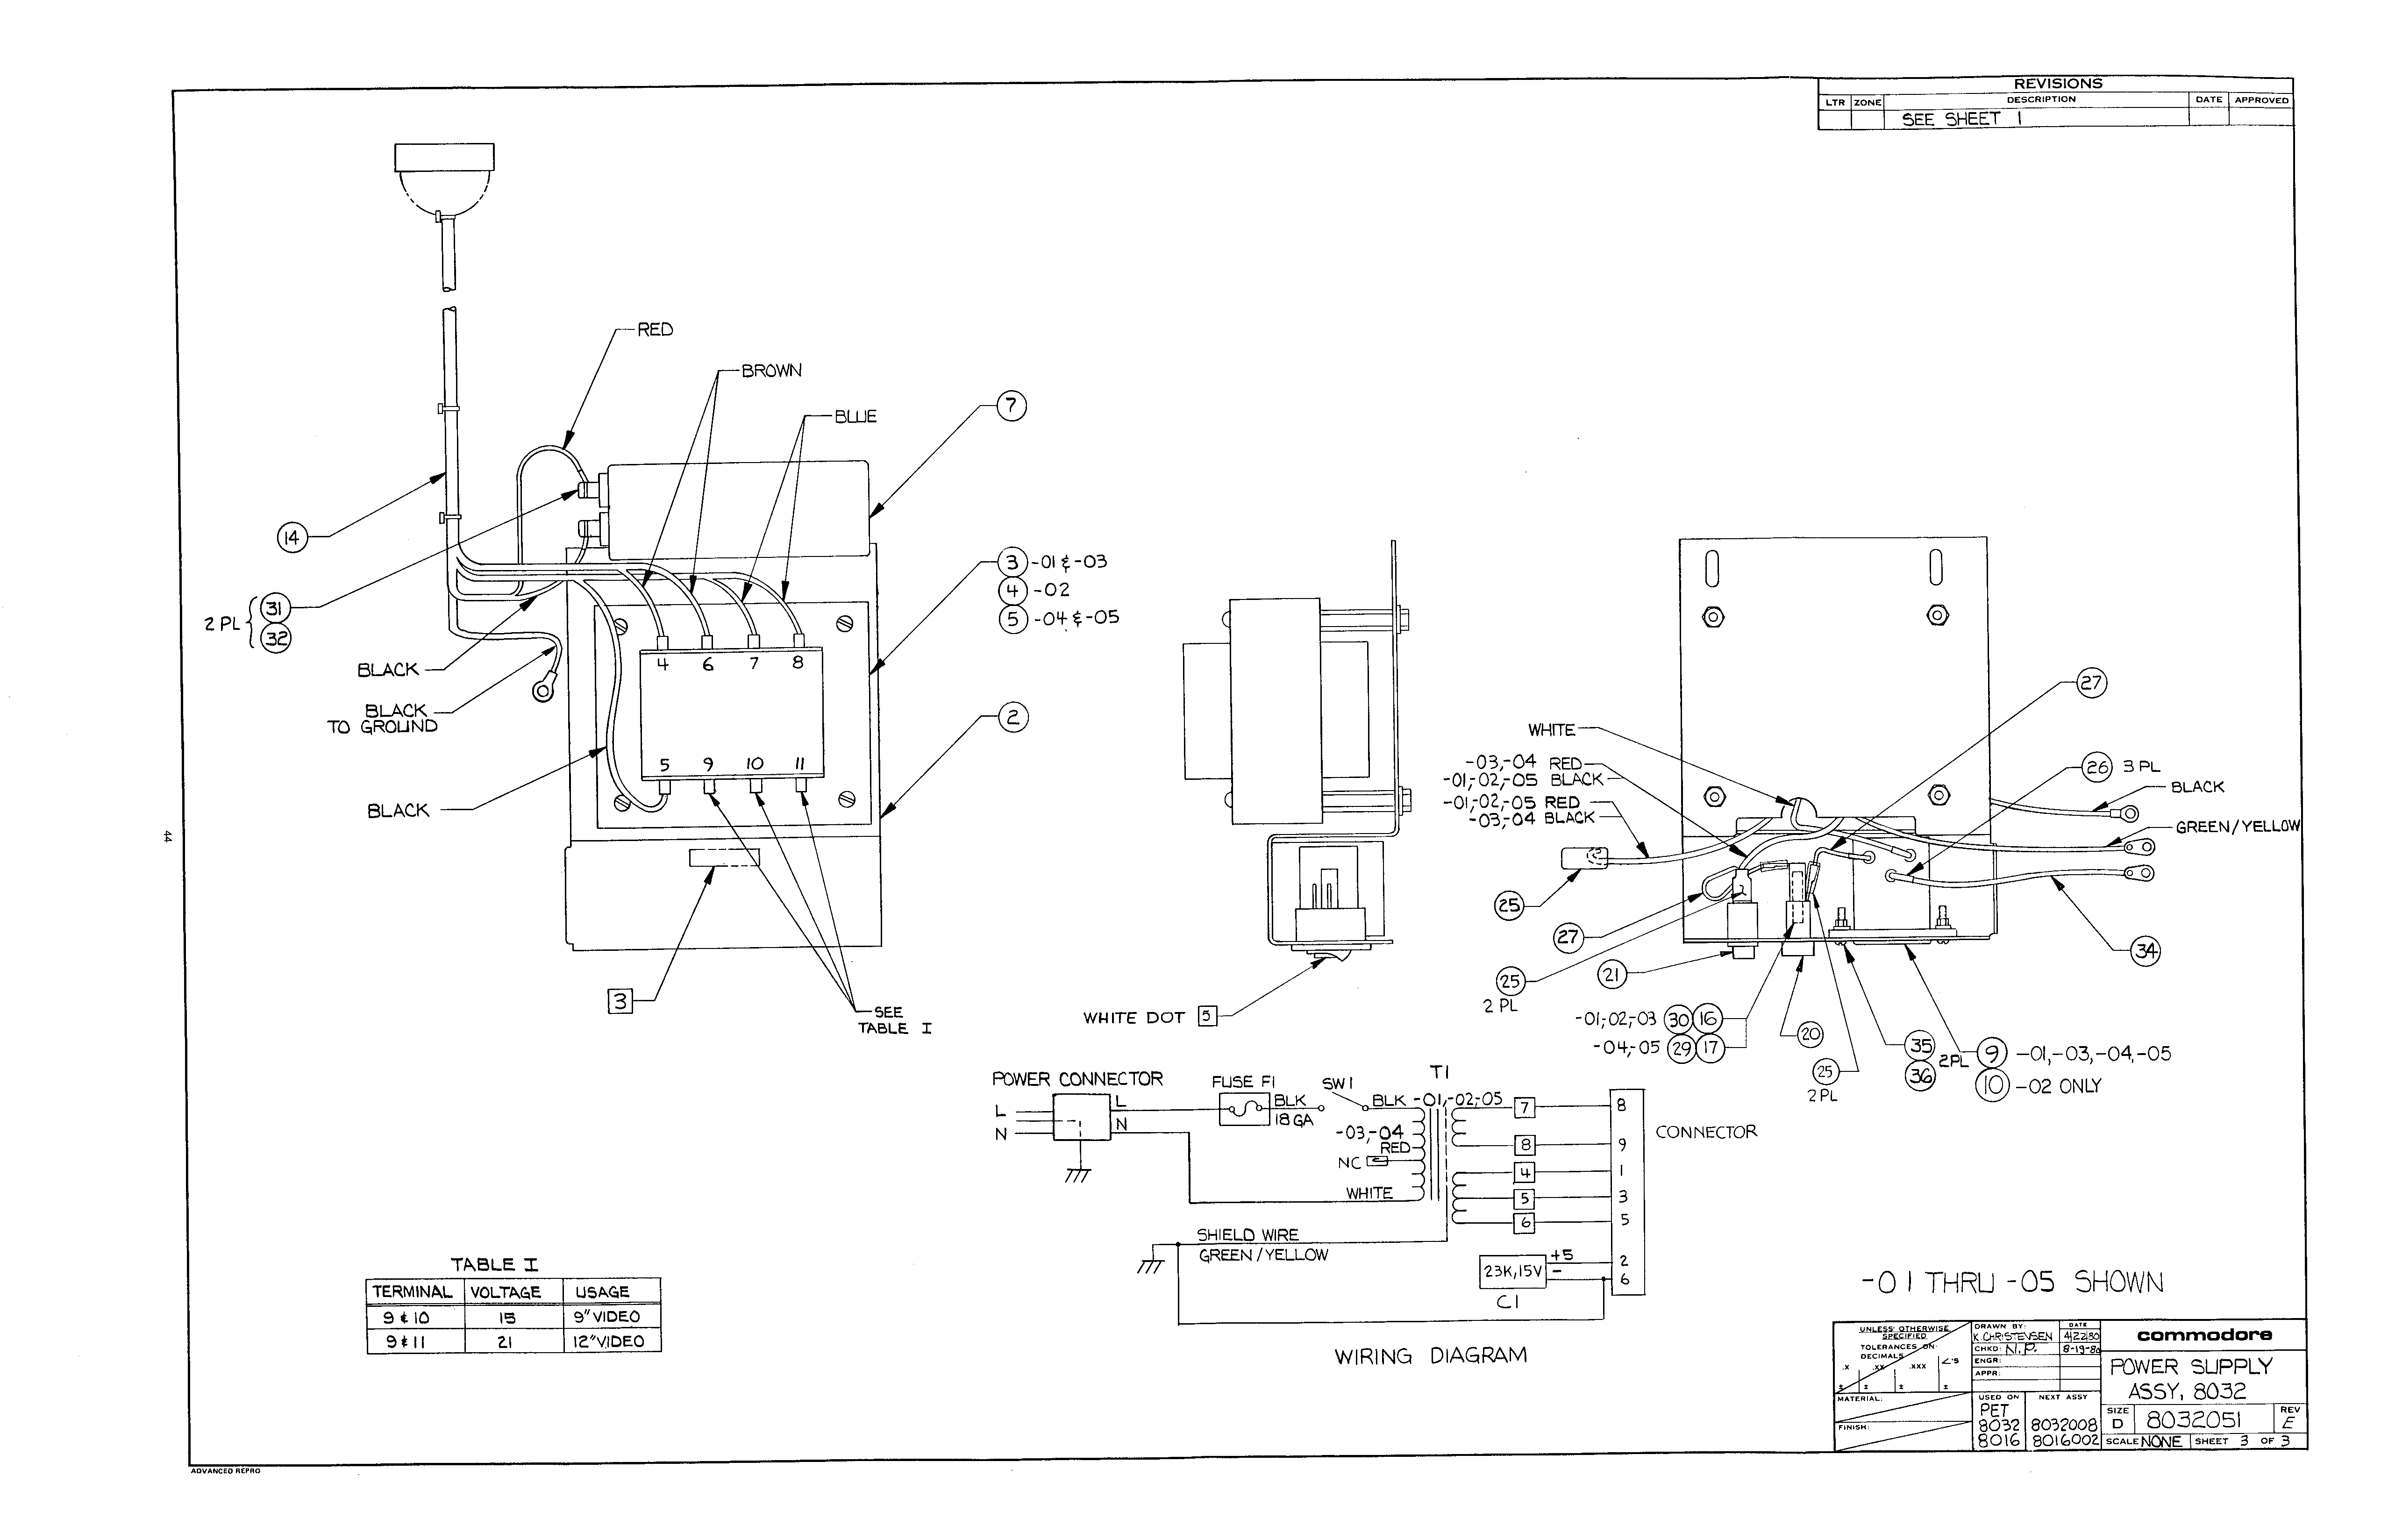 REVISIONS
LTR ZONE DESCRIPTION DATE APPROVED
SEE SHEET 1
RED
BROWN
BLUE
7
14
3 -01 & -03
4 -02
5 -04 & -05
2 PL
31
32
BLACK
BLACK
TO GROUND
BLACK
4 6 7 8
5 9 10 11
2
3
SEE
TABLE I
WHITE DOT 5
WHITE
-03,-04 RED
-01,-02,-05 BLACK
-01,-02,-05 RED
-03,-04 BLACK
27
26 3 PL
BLACK
GREEN/YELLOW
25
27
25
2 PL
21
34
-01,-02,-03 30 16
-04,-05 29 17
20
25
2 PL
35
36
2PL
9 -01,-03,-04,-05
10 -02 ONLY
44
POWER CONNECTOR
L
N
L
N
FUSE F1
BLK
18 GA
SW1
BLK -01,-02,-05
T1
-03,-04
RED
NC
WHITE
7 8
8 9
4 1
5 3
6 5
CONNECTOR
SHIELD WIRE
GREEN/YELLOW
23K,15V
+5 2
- 6
C1
WIRING DIAGRAM
TABLE I
TERMINAL VOLTAGE USAGE
9 & 10 15 9" VIDEO
9 & 11 21 12" VIDEO
-01 THRU -05 SHOWN
UNLESS OTHERWISE
SPECIFIED
TOLERANCES ON
DECIMALS
.X .XX .XXX ∠'S
± ± ± ±
MATERIAL:
FINISH:
DRAWN BY: DATE
K. CHRISTENSEN 4/22/80
CHKD: N.P. 8-19-80
ENGR:
APPR:
USED ON NEXT ASSY
PET
8032 8032008
8016 8016002
commodore
POWER SUPPLY
ASSY, 8032
SIZE D 8032051 REV E
SCALE NONE SHEET 3 OF 3
ADVANCED REPRO